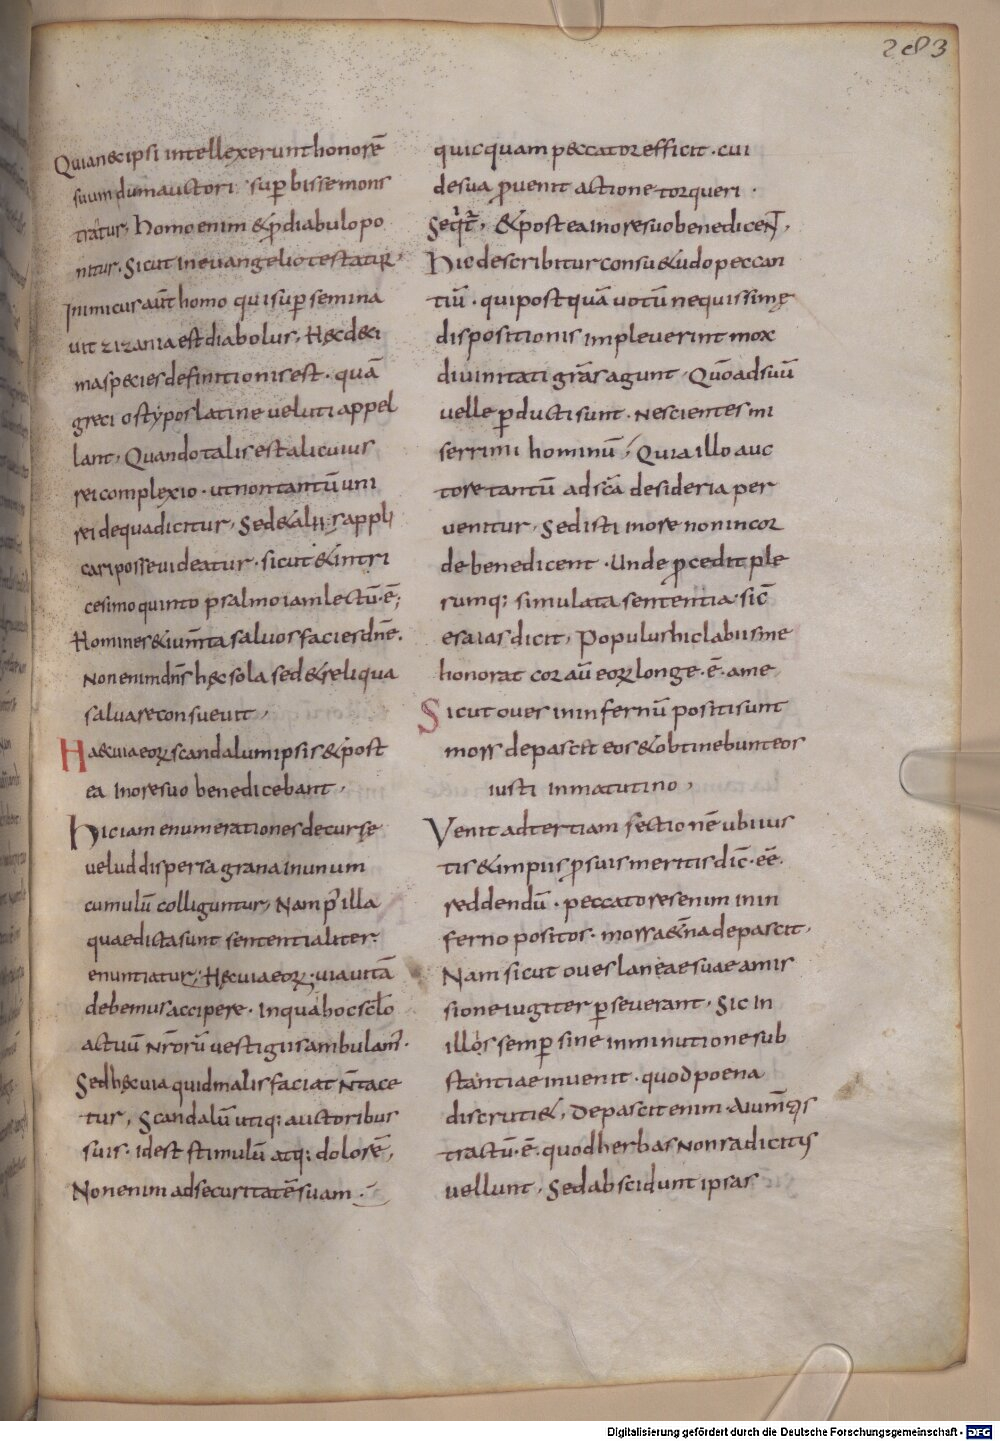 283
Quianecipsi intellexerunt honorē
suum dum auctori sup̱bisse mons
tratur, homo enim & p̱ diabulo po
nitur. Sicut in euangelio testatur
Inimicus aūt homo qui sup̱ semina
uit zizania est diabolus, Hęc deci
ma species definitionis est. quā
greci ostypos latine ueluti appel
lant, Quando talis est alicuius
rei complexio. ut non tantū uni
rei de qua dicitur, Sed & aliis appli
cari posse uideatur. sicut & in tri
cesimo quinto psalmo iam lectū.ē;
Homines & ium̄ta saluos facies dn̄e.
Non enim dn̄s hęc sola sed & reliqua
saluare consueuit,
Haec uia eoꝝ scandalum ipsis & post
ea in ore suo benedicebant,
Hic iam enumerationes decurse
uelud dispersa grana in unum
cumulū colliguntur, Nam p illa
quae dicta sunt sententialiter.
enuntiatur, Hęc uia eoꝝ. uia uitā
debemus accipere. In qua hoc sc̄lo
actuū nr̄orū uestigiis ambulam̄.
Sed hęc uia quid malis faciat n̄ tace
tur, Scandalū utiq; auctoribus
suis. idest stimulū atq; dolorē,
Non enim ad securitatē suam.
quicquam peccator efficit. cui
de sua p̱uenit actione torqueri.
Seq̄t̄, & postea in ore suo benedicen̄t,
Hic describitur consu&udo peccan
tiū. qui postquā uotū nequissimę
dispositionis impleuerint mox
diuinitati grās agunt, Quō ad suū
uelle p̱ducti sunt. Nescientes mi
serrimi hominū, Quia illo auc
tore tantū ad sc̄a desideria per
uenitur, Sed isti more non in cor
de benedicent. Unde p̱cedit ple
rumq; simulata sententia. sic̄
esaias dicit, Populus hic labiis me
honorat cor aū eoꝝ longe.ē. a me
Sicut oues in infernū positi sunt
mors depascit eos & obtinebunt eos
iusti in matutino,
Venit ad tertiam sectionē ubi ius
tis & impiis p̱ suis meritis dic̄. eē.
reddendū. peccatores enim in in
ferno positos. mors a&na depascit,
Nam sicut oues lane ae suae amis
sione iugiter p̱seuerant. Sic in
illos semp̱ sine inminutione sub
stantiae inuenit. quod poena
discruti&, Depascit enim. A ium̄tis
tractū.ē. quod herbas non radicitus
uellunt, Sed abscidunt ipsas
Digitalisierung gefördert durch die Deutsche Forschungsgemeinschaft - DFG